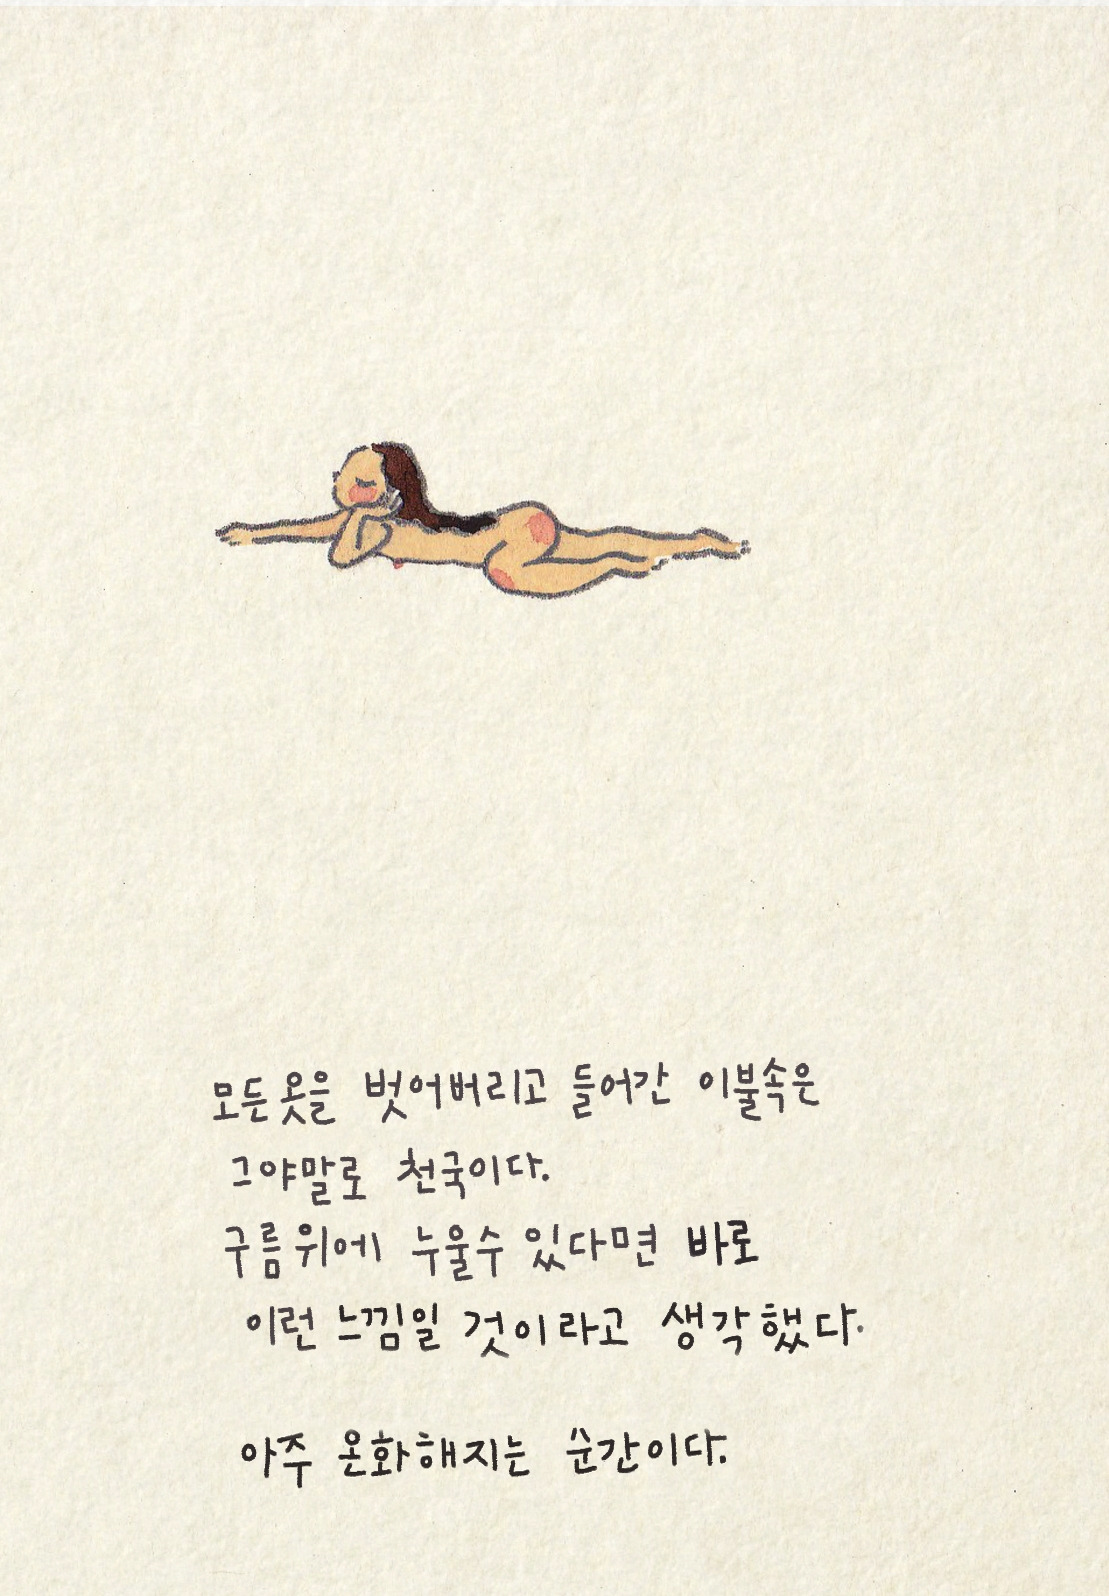 모든 옷을 벗어버리고 들어간 이불속은
그야말로 천국이다.
구름 위에 누울수 있다면 바로
이런 느낌일 것이라고 생각했다.
아주 온화해지는 순간이다.